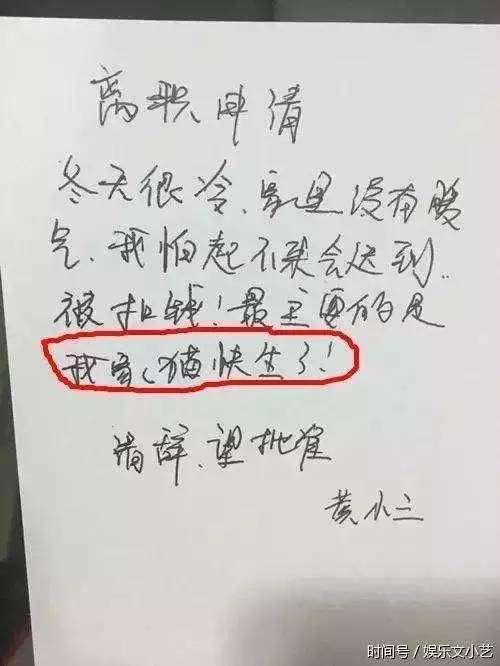 离职申请
冬天很冷、家里没有暖
气、我怕起不来会迟到..
被扣钱！最主要的是
我家心猫快生了！
请辞、望批准
黄小三
时间号／娱乐文小艺